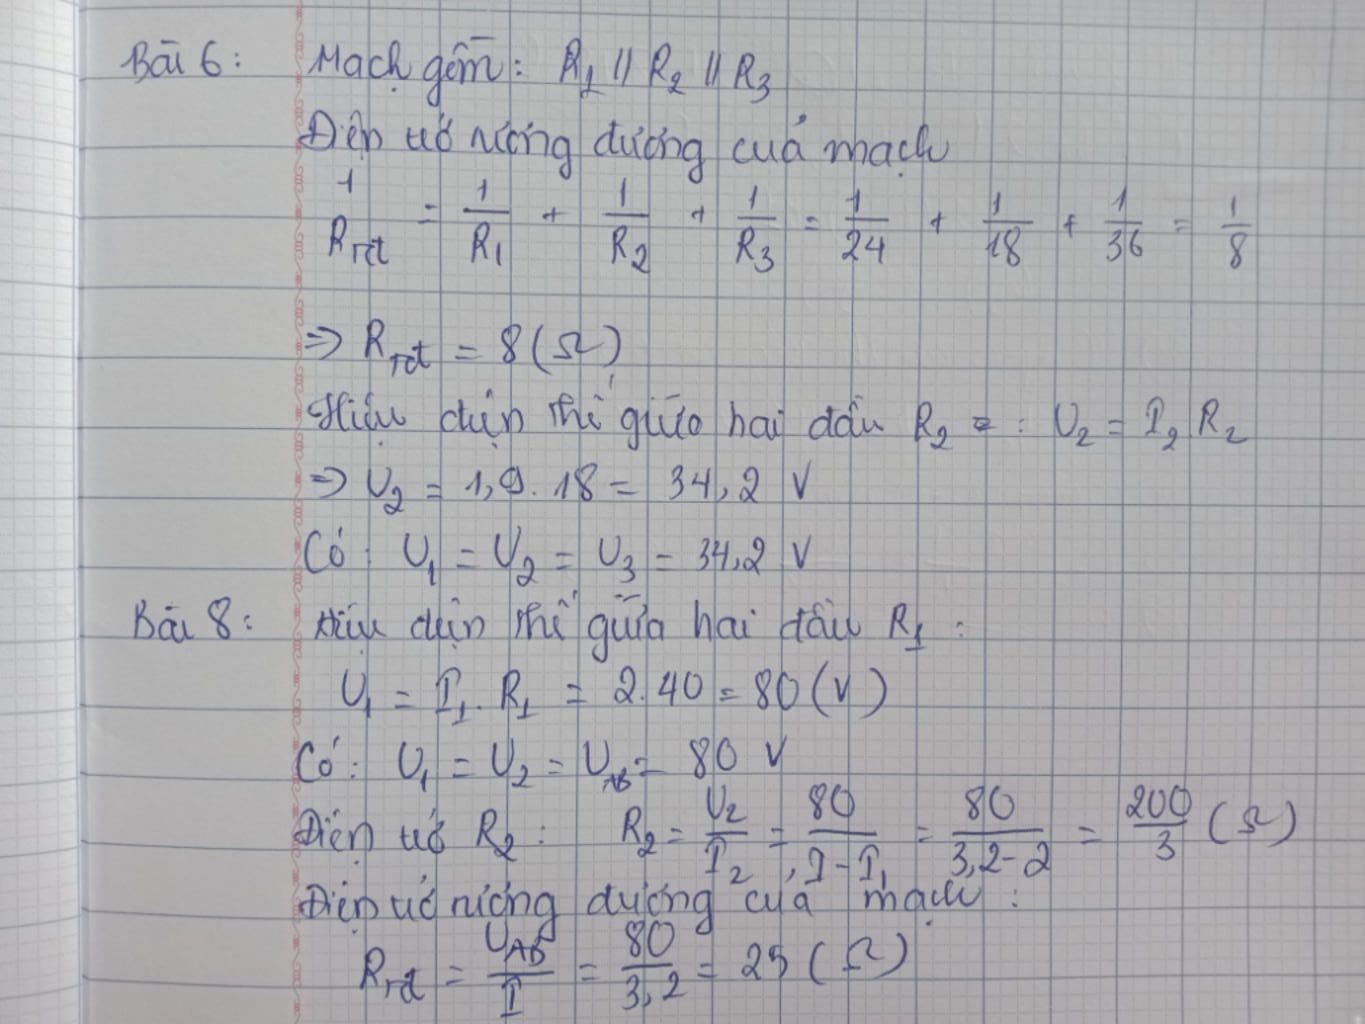 Bài 6: Mạch gồm: R1 // R2 // R3
Điện trở tương đương của mạch
1/Rtđ = 1/R1 + 1/R2 + 1/R3 = 1/24 + 1/18 + 1/36 = 1/8
=> Rtđ = 8 (Ω)
Hiệu điện thế giữa hai đầu R2 = : U2 = I2 R2
=> U2 = 1,9. 18 = 34,2 V
Có: U1 = U2 = U3 = 34,2 V
Bài 8: Hiệu điện thế giữa hai đầu R1 :
U1 = I1. R1 = 2.40 = 80 (V)
Có: U1 = U2 = UAB = 80 V
Điện trở R2 : R2 = U2/I2 = 80/I-I1 = 80/3,2-2 = 200/3 (Ω)
Điện trở tương đương của mạch :
Rtđ = UAB/I = 80/3,2 = 25 (Ω)